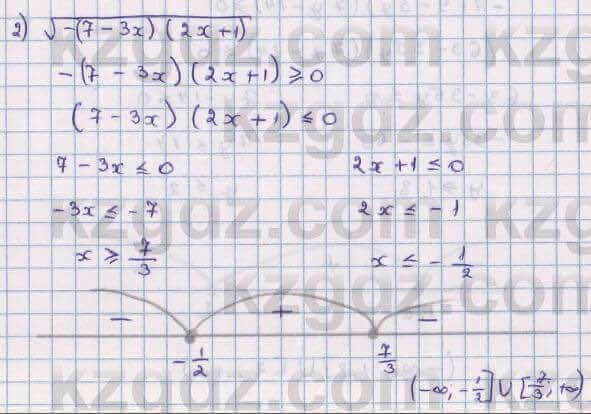 2) √-(7-3x)(2x+1)
-(7-3x)(2x+1)≥0
(7-3x)(2x+1)≤0
7-3x≤0 2x+1≤0
-3x≤-7 2x≤-1
x≥7/3 x≤-1/2
- + -
-1/2 7/3
(-∞,-1/2]∪[7/3,+∞)
kzgdz.com
kzgdz.com
kzgdz.com
kzgdz.com